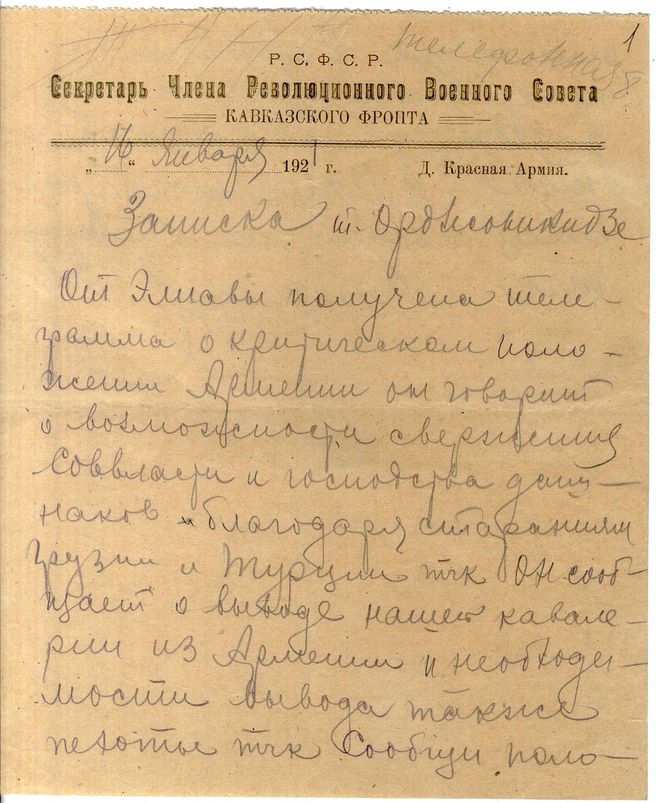 1
телефонная
Р. С. Ф. С. Р.
Секретарь Члена Революционного Военного Совета
КАВКАЗСКОГО ФРОНТА
„16“ января 1921 г. Д. Красная Армия.
Записка т. Орджоникидзе
От Элиавы получена теле-
грамма о критическом поло-
жении Армении он говорит
о возможности свержения
Соввласти и господства даш-
наков и благодаря стараниям
Грузии и Турции тчк Он сооб-
щает о выходе нашей кавале-
рии из Армении и необходи-
мости вывода также
пехоты тчк Сообщи поло-